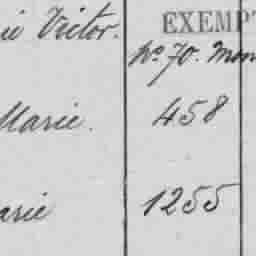 ie Victor. EXEMPT
No. 70. Mon
Marie. 458
arie 1255